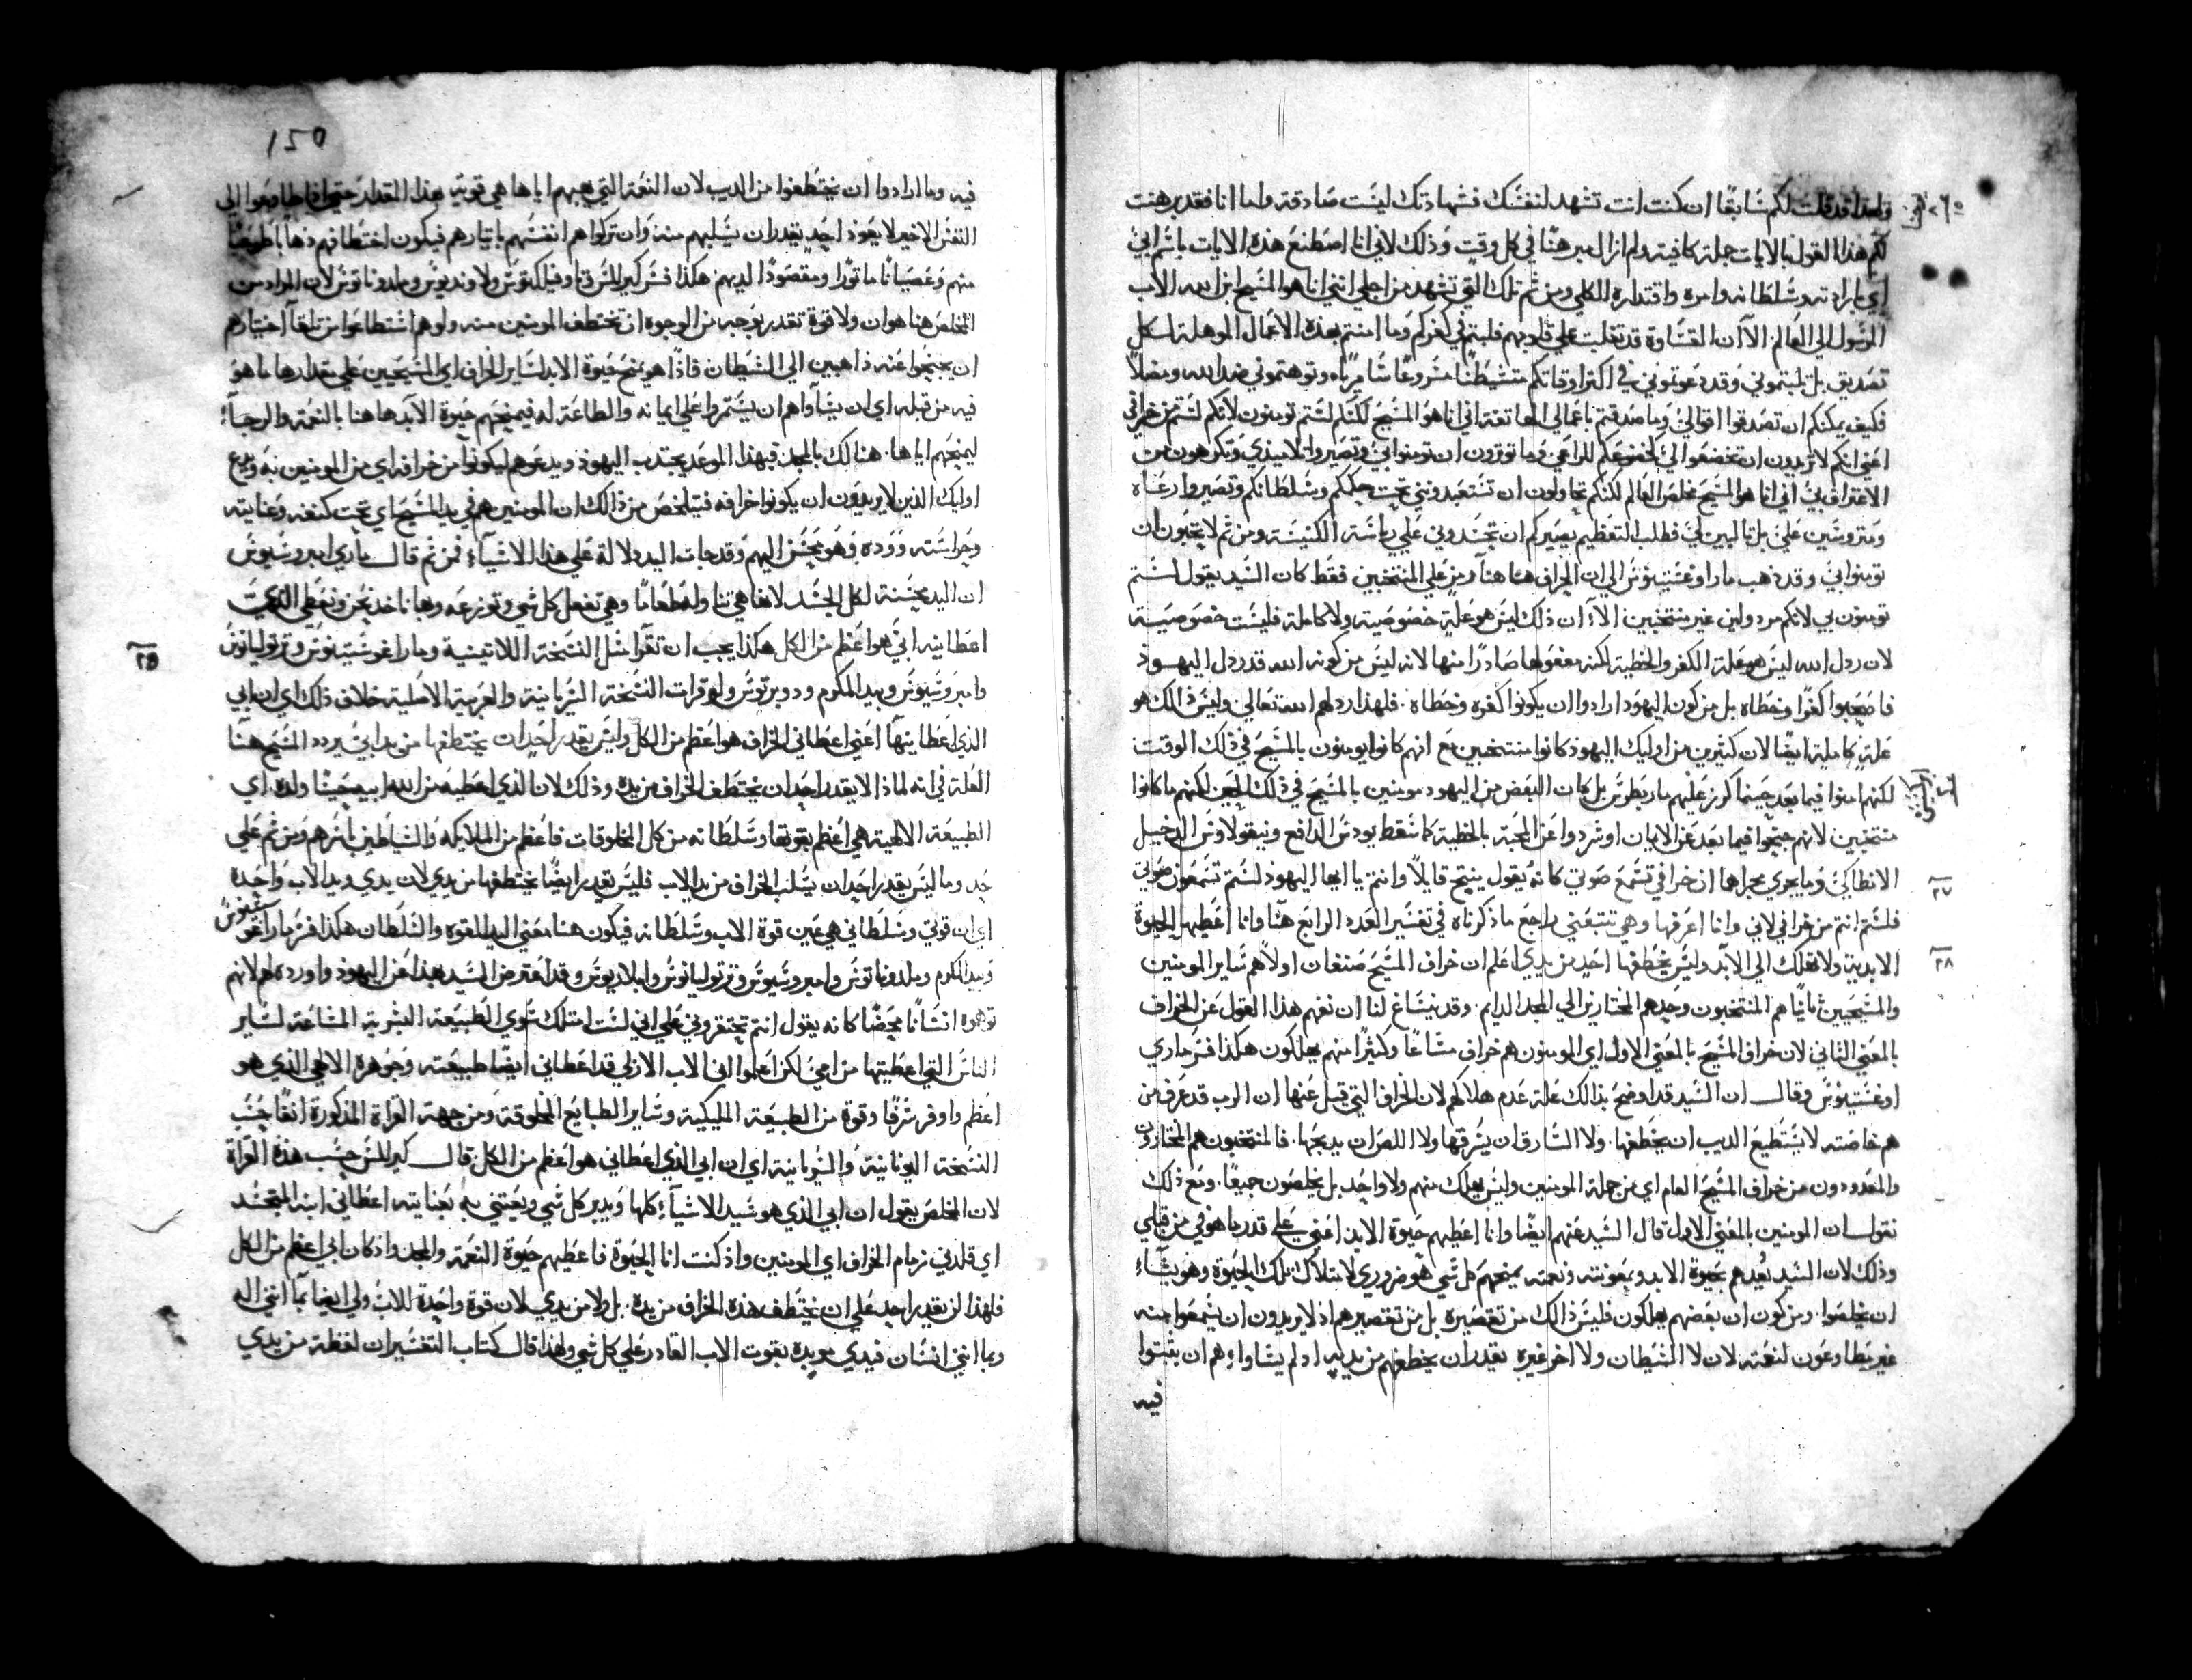 ولهذا قد قلت لكم سابقًا ان كنت انت تشهد لنفسك فشهادتك ليست صادقة واما انا فقد برهنت
لكم هذا القول بالايات جملة كافية ولم ازال مبرهنًا في كل وقت وذلك لاني انا اصطنع هذه الايات باسم ابي
اي بارادته وسلطانه وامره واقتداره الكلي ومن ثم تلك التي تشهد من اجلي انني انا هو المسيح ابن الله الاب
المرسول الي العالم. الا ان القساوة قد تغلبت علي قلوبهم فلبتم في كفركم وما امنتم بهذه الاعمال الموهلة لكل
تصديق بل ثلبتموني وقد دعوتموني في اكثر اوقاتكم متشيطنًا مشروعًا سامريًاه وتوهمتموني ضد الله ومضلاً
فكيف يمكنكم ان تصدقوا اقوالي وما صدقتم باعمالي انها تعنه اني انا هو المسيح لكنكم لستم تومنون لانكم لستم من خرافي
اعني انكم لا تريدون ان تخضعوا الي كخضوعكم للراعي وما توثرون ان تومنوا بي وتصيروا تلاميذي وتكرهون من
الاعتراف بي اني انا هو المسيح مخلص العالم لكنكم تحاولون ان تستعبدونني تحت حكمكم وسلطانكم وتصيروا رعاه
ومتروسين علي بل تالبين لي فطلب التعظيم يصيركم ان تحسدوني علي رياسة الكنيسة ومن ثم لا تحبون ان
تومنوا بي وقد ذهب مار اوغستينوس الي ان الخراف هنا هنا رمز علي المنتخبين فقط كان السيد يقول لستم
تومنون بي لانكم مردولين غير منتخبين الا ان ذلك ليس هو علة خصوصية ولا كاملة فليست خصوصية
لان ردل الله ليس هو علة الكفر والخطية لكنه مفعولها صادرًا منها لانه ليس من كونه الله قد ردل اليهود
فاضحوا كفرا وخطاه بل من كون اليهود ارادوا ان يكونوا كفره وخطاه. فلهذا ردلهم الله تعالي وليس ذلك هو
علة كاملة ايضًا لان كثيرين من اوليك اليهود كانوا منتخبين مع انهم كانوا يومنون بالمسيح في ذلك الوقت
لكنهم امنوا فيما بعد حينما كرز عليهم مار بطرس بل كان البعض من اليهود مومنين بالمسيح في ذلك الحين لكنهم ما كانوا
منتخبين لانهم جنحوا فيما بعد عن الايمان او شردوا عن المحبة بالخطية كما سقط يودس الدافع ونيقولاوس الدخيل
٢٧ الانطاكي وما يجري مجراها ان خرافي تسمع صوتي كانه يقول ينتج قايلاً وانتم يا ايها اليهود لستم تسمعون صوتي
فلستم انتم من خرافي لاني وانا اعرفها وهي تتبعني راجع ما ذكرناه في تفسير العدد الرابع هنا وانا اعطيها الحيوة
٢٨ الابدية ولا تهلك الي الابد وليس يخطفها احد من يدي اعلم ان خراف المسيح صنفان اولاً هم ساير المومنين
والمسيحيين ثانيًا هم المنتخبون وحدهم المختارين الي المجد الدايم. وقد يساغ لنا ان نفهم هذا القول عن الخراف
بالمعني الثاني لان خراف المسيح بالمعني الاول اي المومنون هم خراف مشاعًا وكثيرًا منهم يهلكون هكذا فسر ماري
اوغستينوس وقال ان السيد قد اوضح بذالك علة عدم هلاكهم لان الخراف التي قيل عنها ان الرب قد عرف من
هم خاصته لا يستطيع الديب ان يخطفها. ولا السارق ان يسرقها ولا اللص ان يدبحها. فالمنتخبون هم المختارون
والمعدودون من خراف المسيح العام اي من جملة المومنين وليس يهلك منهم ولا واحد بل يخلصون جميعًا. ومع ذلك
نقول ان المومنين بالمعني الاول قال السيد عنهم ايضًا وانا اعطيهم حيوة الابد اعني علي قدر ما هو لي من قبلي
وذلك لان السيد يعدهم بحيوة الابد وبمعونته ونعمته يمنحهم كل شي هو ضروري لامتلاك تلك الحيوة وهو يشاء
ان يخلصوا. ومن كون ان بعضهم يهلكون فليس ذالك من تقصيره بل من تقصيرهم اذ لا يريدون ان يسمعوا منه
غير مطاوعون لنعمته لان لا الشيطان ولا اخر غيره يقدر ان يخطفهم من يديه اذ لم يشاواء هم ان يثبتوا
فيه
150
فيه وما ارادوا ان يختطفوا من الديب لان النعمة التي يهبهم اياها هي قوية بهذا المقدار حتي اذا طاوعوا الي
النفس الاخير لا يعوذ احد يقدر ان يسلبهم منه وان تركوا هم انفسهم باختيارهم فيكون اختطافهم ذهابا طبيعيا
منهم وعصيانًا ماثورًا ومقصودًا لديهم هكذا فسر كيرللس وفيلكتوس ولاونديوس وملدوناتوس لان المراد من
المخلص هنا هو ان ولا قوة تقدر بوجه من الوجوه ان تختطف المومنين منه ولو هم استطاعوا من تلقاء اختيارهم
ان يجنحوا عنه ذاهبين الي الشيطان فاذًا هو يمنح حيوة الابد لساير الخراف اي المسيحيين علي مقدار ها ما هو
فيه من قبله اي ان يشاواهم ان يستمروا علي ايمانه والطاعة له فيمنحهم حيوة الابد ها هنا بالنعمة والرجاء
ليمنحهم اياها. هنالك بالمجد فبهذا الوعد يجتدب اليهود ويدعوهم ليكونوا من خرافه اي من المومنين به
اوليك الذين لا يريدون ان يكونوا خرافه فيتلخص من ذالك ان المومنين هم في يد المسيح اي تحت كنفه وعنايته
وحراسته ووده وهو يحسن اليهم وقد جات اليد دلالة علي هذا الاشياء فمن ثم قال ماري امبروسيوس
ان اليد محسنة لكل الجسد لانها هي تناوله طعامًا وهي تفعل كل شي وتوزعه
٢٩ اعطانيه ابي هو اعظم من الكل هكذا يجب ان تقرا مثل النسخة اللاتينية ومار اغوستينوس وترتوليانوس
وامبروسيوس وبيدا المكرم ودوبرتوس ولو قرات النسخة السريانية والعربية الاصلية خلاف ذلك اي ان ابي
الذي اعطانيها اعني اعطاني الخراف هو اعظم من الكل وليس يقدر احد ان يختطفها من يد ابي يردد المسيح هنا
العلة في انه لماذا لا يقدر احد ان يختطف الخراف من يده وذلك لان الذي اعطيه من الله ابيه حينما ولده اي
الطبيعة الالهية هي اعظم بقوتها وسلطانه من كل المخلوقات فاعظم من الملايكه والشياطين باسرهم ومن ثم علي
حد وما ليس يقدر احد ان يسلب الخراف من يد الاب فليس يقدر ايضًا يختطفها من يدي لان يدي ويد الاب واحدة
اي ان قوتي وسلطاني هي عين قوة الاب وسلطانه فيكون هنا معني اليد القوه والسلطان هكذا فسر مار اغوستينوس
وبيدا المكرم وملدوناتوس وامبروسيوس وترتوليانوس وايلاريوس وقد اعترض السيد بهذا عن اليهود واورده لهم لانهم
توهموه انسانًا محضًا كانه يقول انتم تحتقروني علي اني لست امتلك سوي الطبيعة البشرية المشاعة لساير
الناس التي اعطيتها من امي لكن اعلموا ان الاب الازلي قد اعطاني ايضًا طبيعته وجوهره الالهي الذي هو
اعظم واوفر شرفًا وقوة من الطبيعة المليكية وساير الطبايع المخلوقة ومن جهة القراة المذكورة انفًا حسب
النسخة اليونانية والسريانية اي ان ابي الذي اعطاني هو اعظم من الكل قال كيرللس حسب هذه القراة
لان المخلص يقول ان ابي الذي هو سيد الاشياء كلها ويدبر كل شي ويعتني به بعنايته اعطاني ابنه المتجسد
اي قلدني زمام الخراف اي المومنين واذ كنت انا الحيوة فاعطيهم حيوة النعمة والمجد واذ كان ابي اعظم من الكل
فلهذا لن يقدر احد علي ان يختطف هذه الخراف من يده. بل ولا من يدي لان قوة واحدة للاب ولي ايضا بما انني اله
وبما انني انسان فيدي مويدة بقوت الاب القادر علي كل شي ولهذا قال كتاب التفسير ان لفظة من يدي